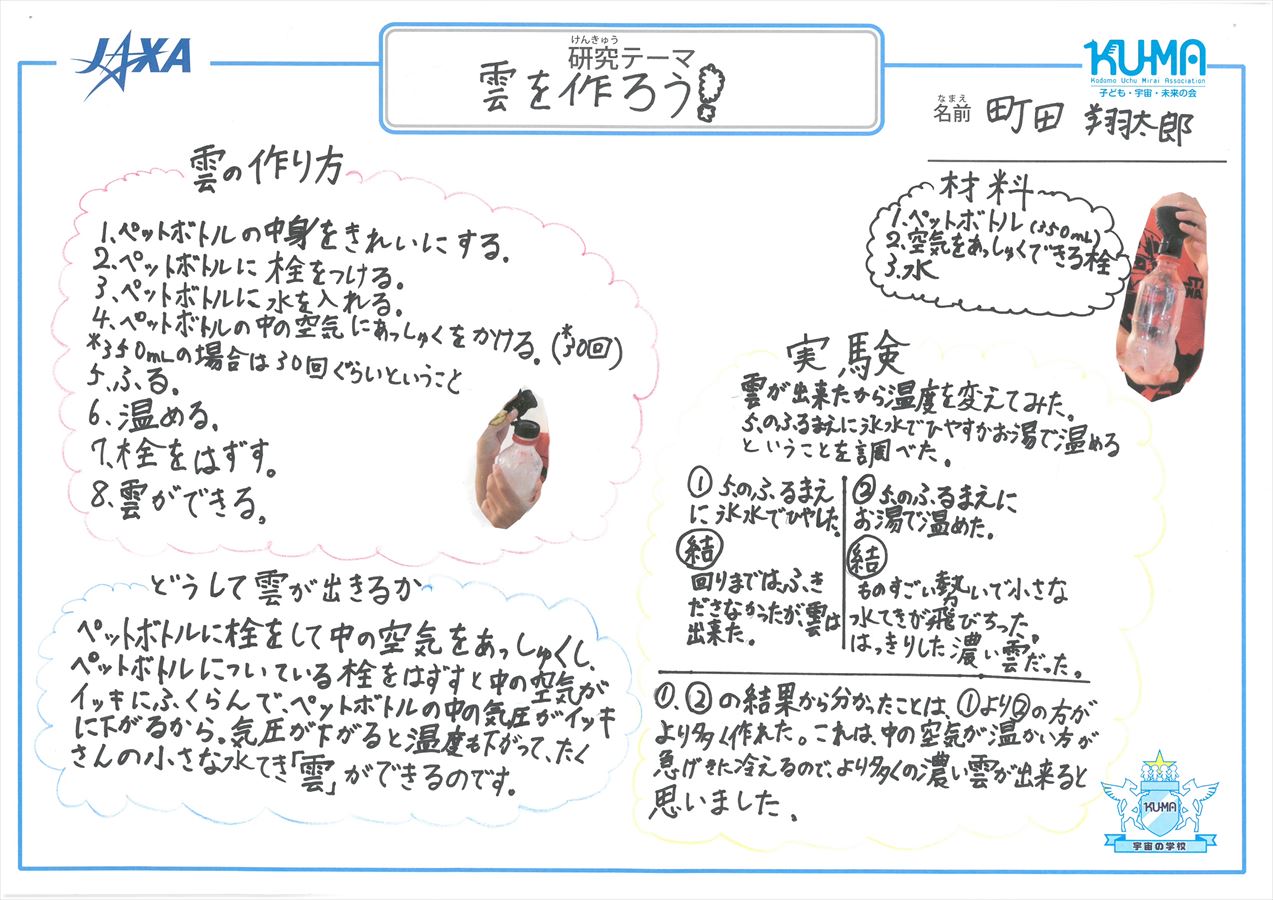 JAXA
けんきゅう
研究テーマ
雲を作ろう!
KU-MA
Kodomo Uchu Mirai Association
子ども・宇宙・未来の会
なまえ
名前 町田 翔太郎
雲の作り方
1.ペットボトルの中身をきれいにする。
2.ペットボトルに栓をつける。
3.ペットボトルに水を入れる。
4.ペットボトルの中の空気にあっしゅくをかける。(*30回)
*350mLの場合は30回ぐらいということ
5.ふる。
6.温める。
7.栓をはずす。
8.雲ができる。
どうして雲が出きるか
ペットボトルに栓をして中の空気をあっしゅくし、
ペットボトルについている栓をはずすと中の空気が
イッキにふくらんで、ペットボトルの中の気圧がイッキ
に下がるから。気圧が下がると温度も下がって、たく
さんの小さな水てき「雲」ができるのです。
材料
1.ペットボトル(350mL)
2.空気をあっしゅくできる栓
3.水
実験
雲が出来たから温度を変えてみた。
5.のふるまえに氷水でひやすかお湯で温める
ということを調べた。
①5.のふるまえ
に氷水でひやした。
結
回りまでは、ふき
ださなかったが、雲は
出来た。
②5.のふるまえに
お湯で温めた。
結
ものすごい勢いで小さな
水てきが飛びちった。
はっきりした濃い雲だった。
①、②の結果から分かったことは、①より②の方が
より多く作れた。これは、中の空気が温かい方が
急げきに冷えるので、より多くの濃い雲が出来ると
思いました。
KU-MA
宇宙の学校